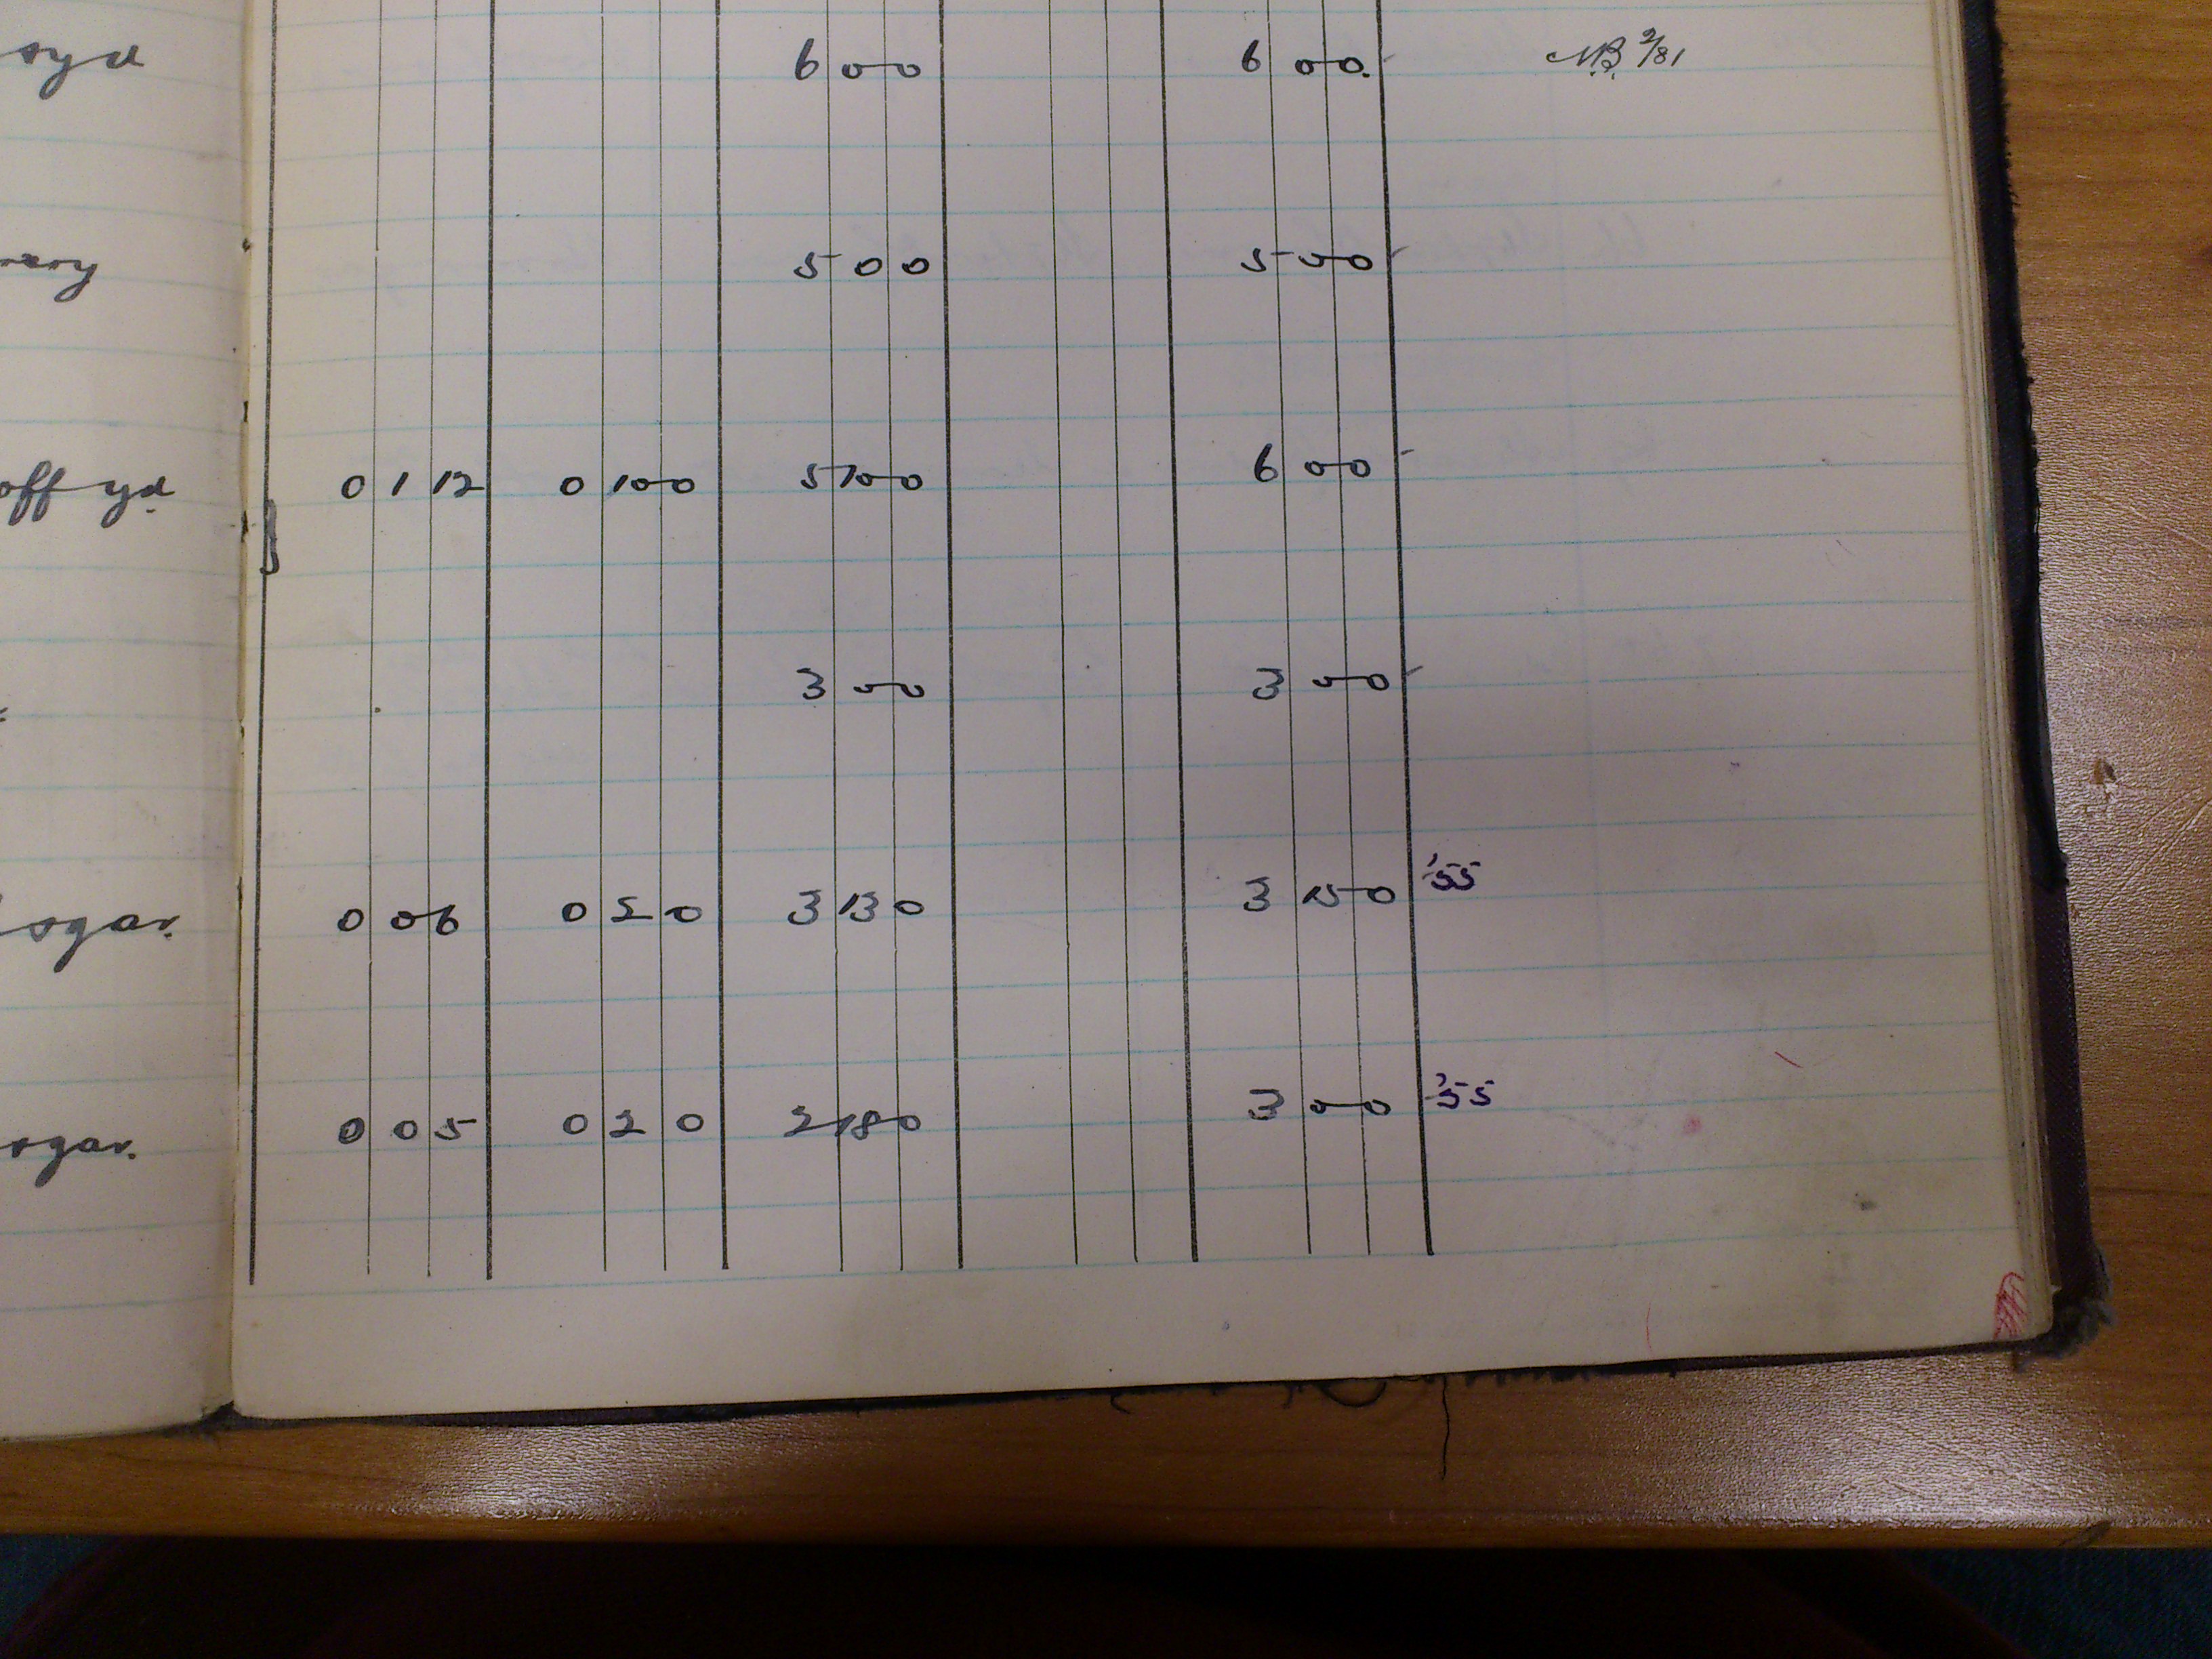 syd 6 0 0 6 0 0 N.B. 2/81
5 0 0 5 0 0
off yd. 0 1 12 0 10 0 5 10 0 6 0 0
3 0 0 3 0 0
sgar. 0 0 6 0 2 0 3 13 0 3 15 0 '55
sgar. 0 0 5 0 2 0 2 18 0 3 0 0 '55